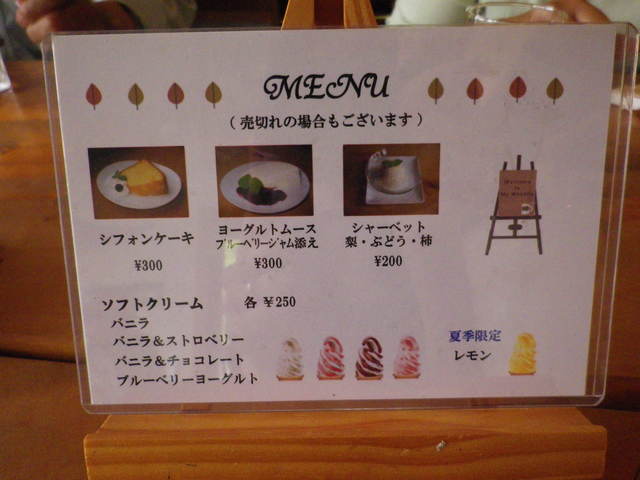 MENU
（売切れの場合もございます）
シフォンケーキ
¥300
ヨーグルトムース
ブルーベリージャム添え
¥300
シャーベット
梨・ぶどう・柿
¥200
ソフトクリーム 各 ¥250
バニラ
バニラ＆ストロベリー
バニラ＆チョコレート
ブルーベリーヨーグルト
夏季限定
レモン
Welcome
to